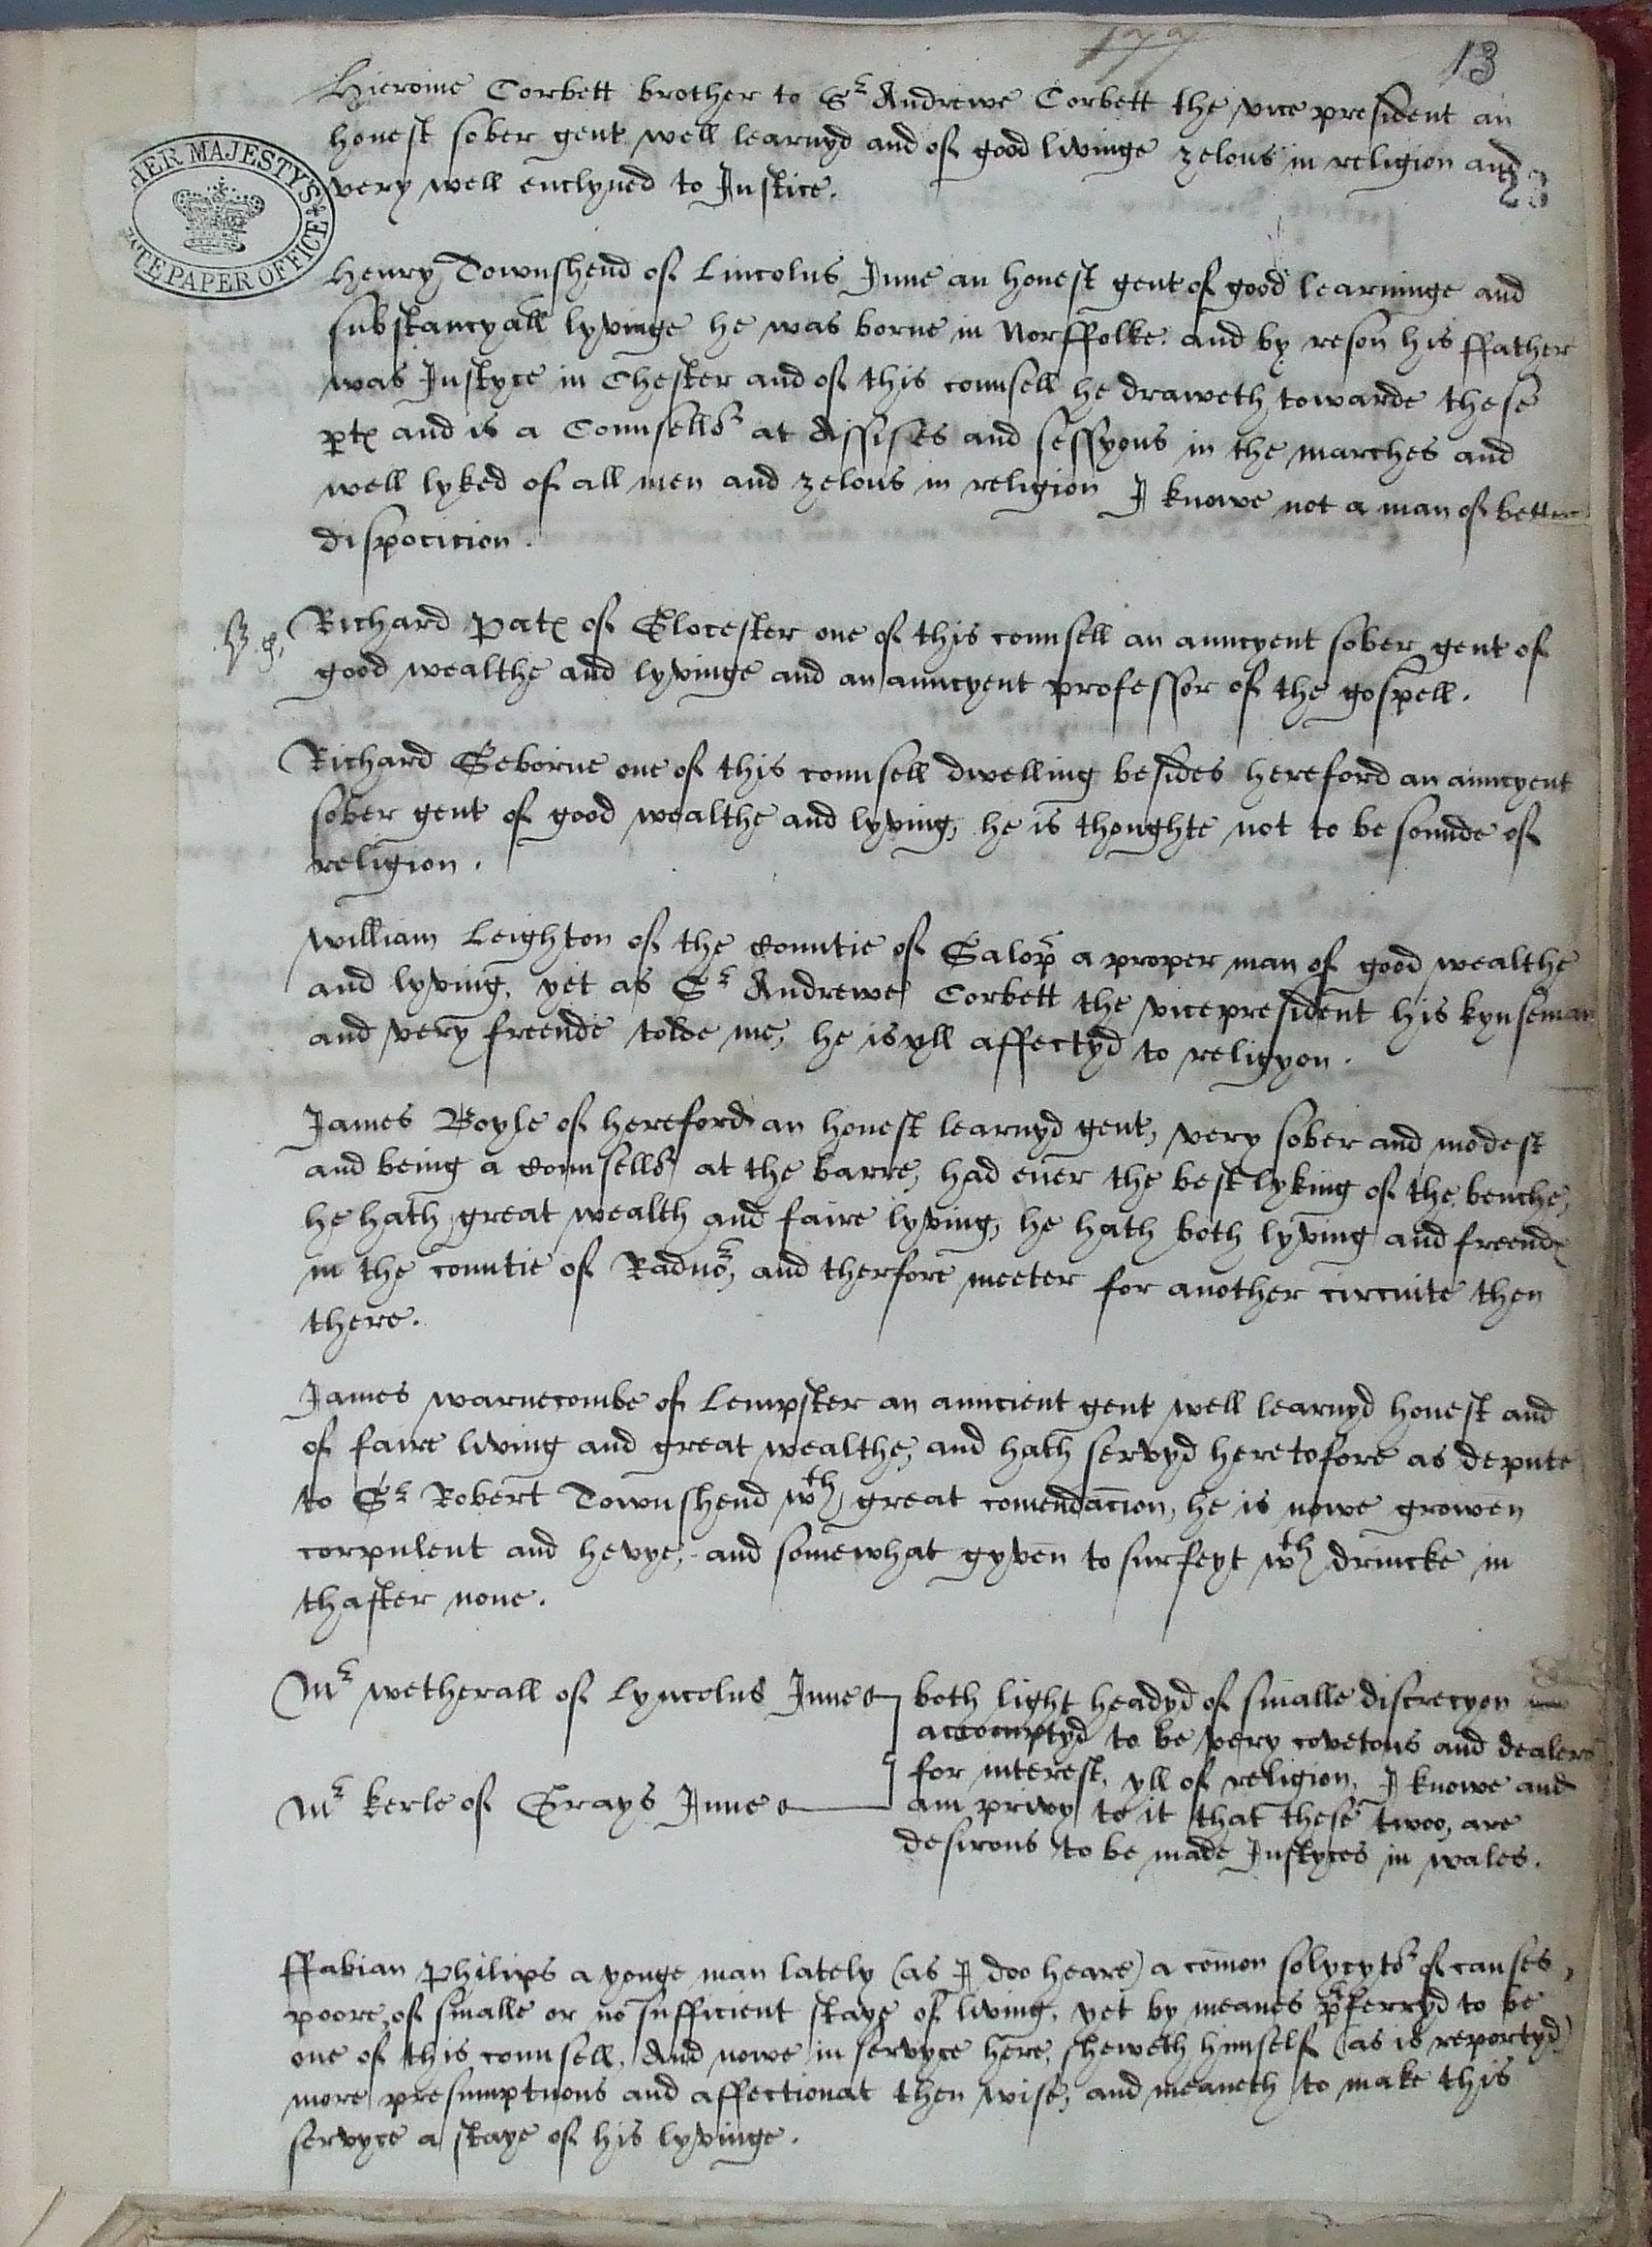 177
13
Hierome Corbett brother to Sr Andrewe Corbett the vice president an
honest sober gent well learnyd and of good livinge zelous in religion and
very well enclyned to Justice.
23
HER MAJESTY'S
STATE PAPER OFFICE
Henry Townshend of Lincolns Inne an honest gent of good learninge and
substancyall lyvinge he was borne in Norffolke. and by reson his ffather
was Justyce in Chester and of this counsell he draweth towarde these
ptes and is a Counsellor at Assises and sessyons in the marches and
well lyked of all men and zelous in religion I knowe not a man of better
dispocicion.
Richard Pates of Glocester one of this counsell an auncyent sober gent of
good wealthe and lyvinge and an auncyent professor of the gospell.
Richard Seborne one of this counsell dwelling besides hereford an auncyent
sober gent of good wealthe and lyving, he is thoughte not to be sounde of
religion.
William Leighton of the Countie of Salop a proper man of good wealthe
and lyving, yet as Sr Andrewe Corbett the vicepresident his kynseman
and very freende tolde me, he is yll affectyd to religyon.
James Boyle of hereford an honest learnyd gent, very sober and modest
and being a Counsellor at the barre, had ever the best lyking of the benche,
he hath great wealth and faire lyving, he hath both lyving and freendes
in the countie of Radnor, and therfore meeter for another circuite then
there.
James warnecombe of Lempster an auncient gent well learnyd honest and
of faire living and great wealthe, and hath servyd heretofore as depute
to Sr Robert Townshend wth great comendacion, he is nowe growen
corpulent and hevye, and somewhat gyven to surfeyt wth drincke in
thafter none.
Mr wetherall of Lyncolns Inne
Mr kerle of Grays Inne
both light headyd of smalle discrecyon
accomptyd to be very covetous and dealers
for interest, yll of religion, I knowe and
am privy to it that these twoo, are
desirous to be made Justyces in wales.
ffabian Philips a yonge man lately (as I doo heare) a comon solycytor of causes,
poore, of smalle or no sufficient staye of living, yet by meanes pferryd to be
one of this counsell, And nowe in servyce here, sheweth himself (as is reportyd)
more presumptuous and affectionat then wise, and meaneth to make this
servyce a staye of his lyvinge.